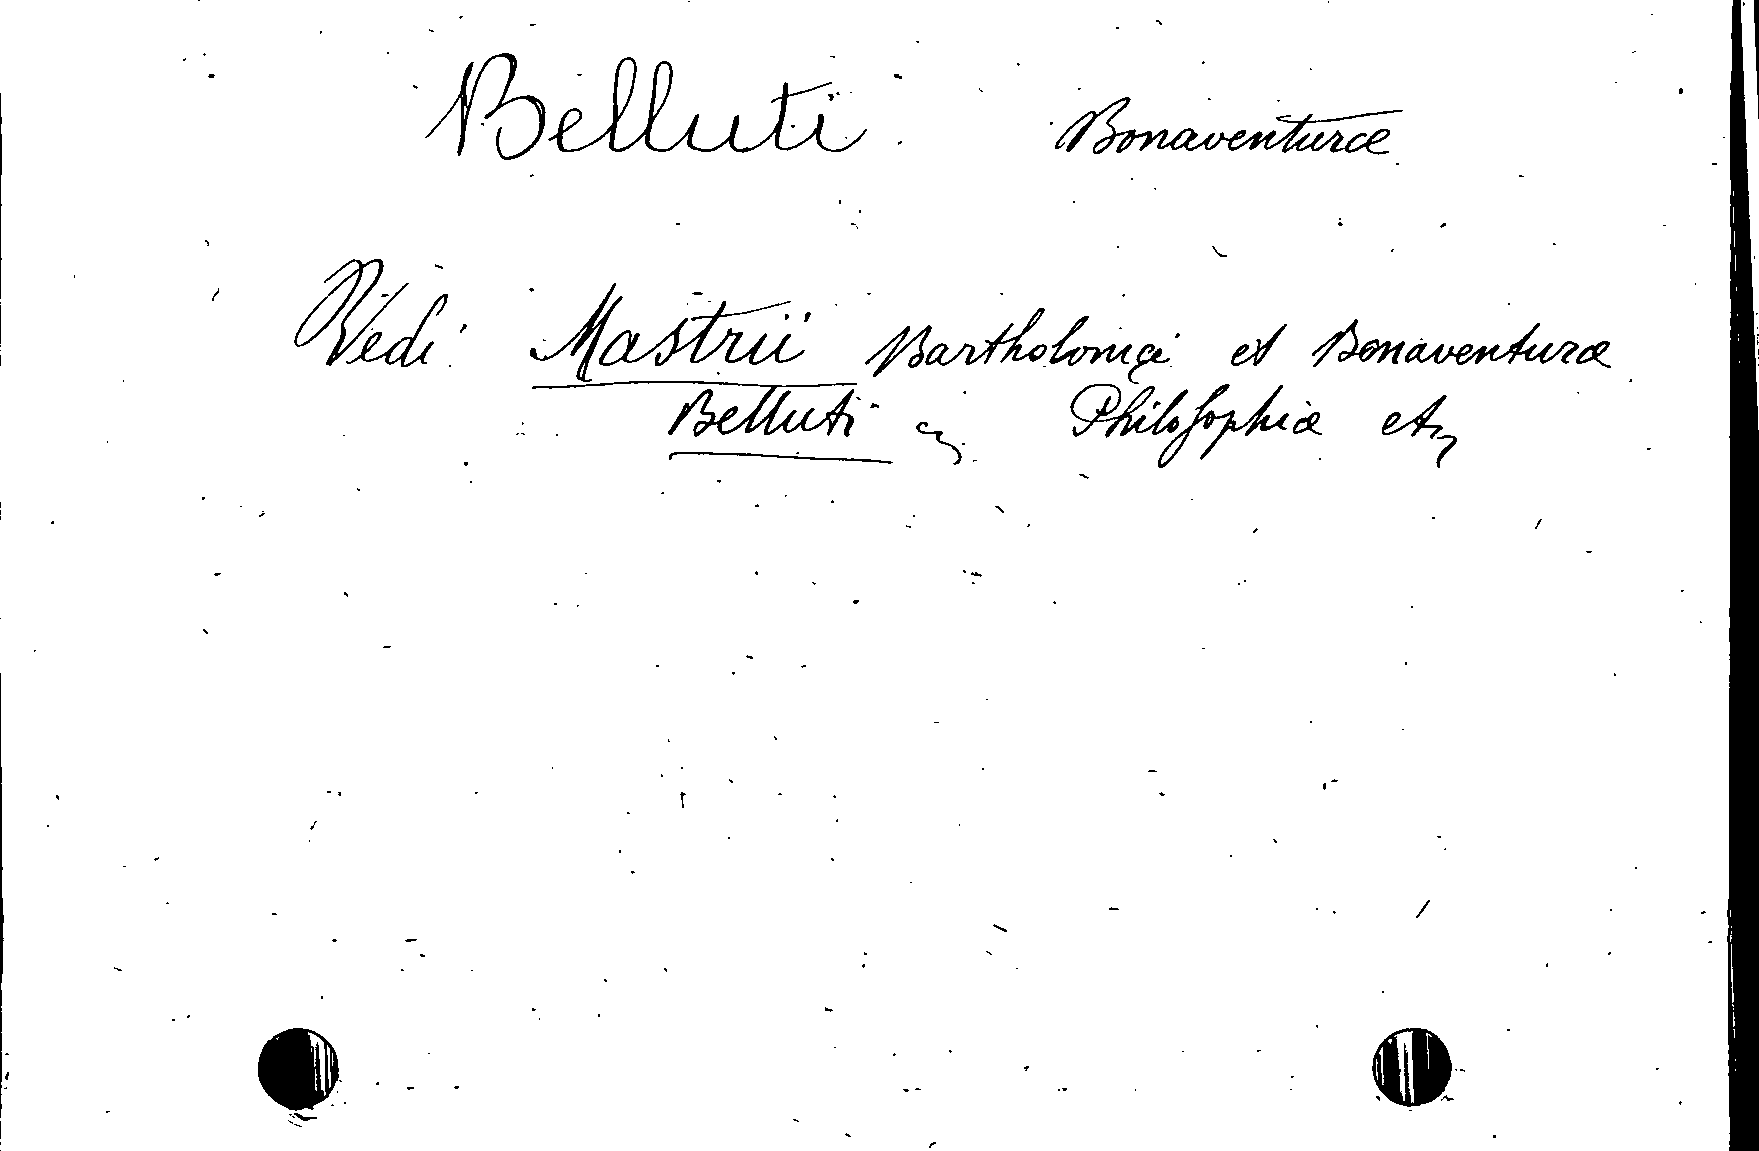 Belluti Bonaventuræ
Vedi Mastrii Bartholomæi et Bonaventuræ
Belluti Philosophiæ etc